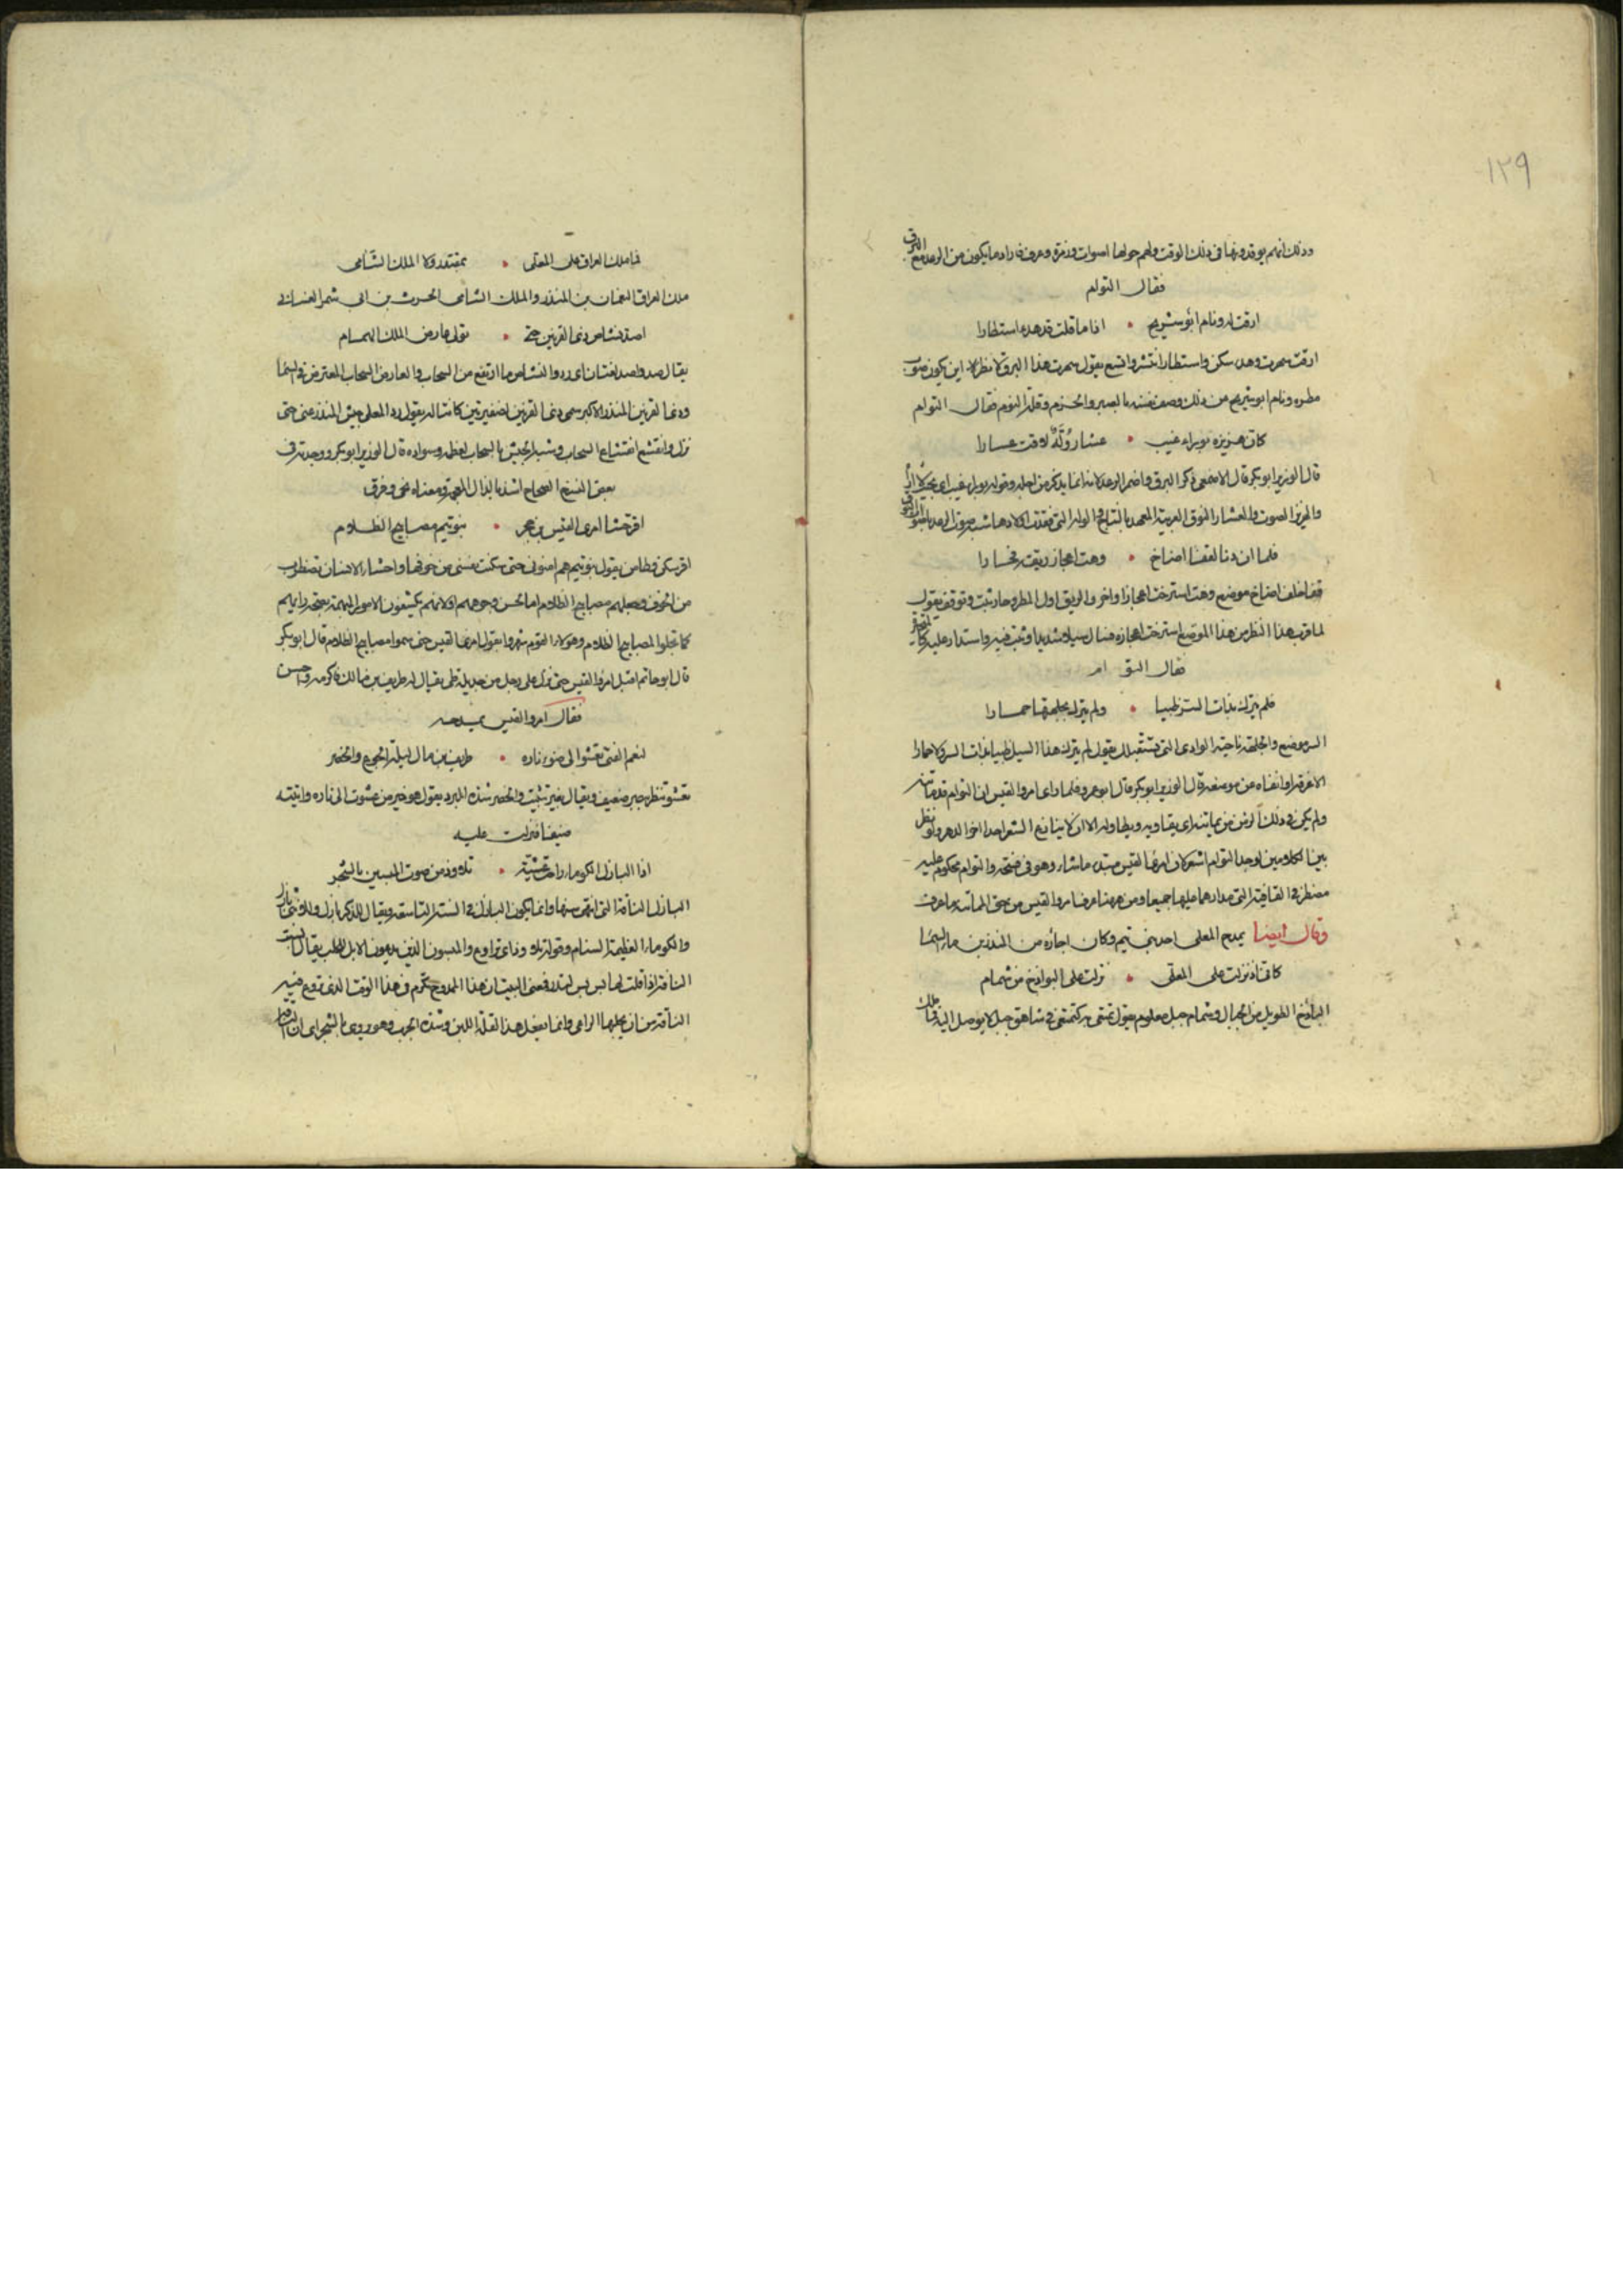 ١٢٩
وذلك انهم يوقدونها فى ذلك الوقت ولهم حولها اصوات وزمزمة وعزف فاراد ما يكون من الرعد مع البرق
فقال التوام
ارقت له ونام ابو شريح • اذا ما قلت قد هدء استطارا
ارقت سهرت وهدء سكن واستطار انتشر واتسع يقول سهرت هذا البرق لانظر الى اين يكون صوب
مطره ونام ابو شريح عن ذلك وصف نفسه بالصبر والحزم وقلة النوم فقال التوام
كان هزيزه بوراء غيب • عشار وُلَّهٌ لاقت عشارا
قال الوزير ابو بكر قال الاصمعى ذكر البرق واضمر الرعد لانه انما يذكر من اجله وقوله بوراء غيب اى
والهزيز الصوت والعشار النوق القريبة العهد بالنتاج والوله التى فقدت اولادها شبه صوت الرعد
فلما ان دنا لقفا اضاخ • وهت اعجاز ريقه فحارا
قفا خلف اضاخ موضع وهت استرخت اعجازا واخر والريق اول المطر وحار ثبت وتوقف يقول
لما قرب هذا المطر من هذا الموضع استرخت اعجازه فسال سيلا شديدا وثبت فيه واستدار عليه كالمتحير
فقال التو ام
فلم يترك بذات السر ظبيا • ولم يترك بجلهتها حمارا
السر موضع والجلهة ناحية الوادى التى تستقبلك يقول لم يترك هذا السيل ظبيا بذات السر ولا حمارا
الا غرقه او انفاه عن موضعه قال الوزير ابو بكر قال ابو عمرو فلما راى امروا القيس ان التوام قد ماتنه
ولم يكن فى ذلك الزمن من يماتنه اى يقاويه ويطاوله الا ان لا ينازع الشعر احدا اخر الدهر ولو نظر
بين الكلامين لوجد التوام اشعر لان امرئ القيس مبتدء ما شاء وهو فى فسحة والتوام محكوم عليه
مضطر فى القافية التى مدارهما عليها جميعا ومن ههنا عرف امروا القيس من حق المماتنة ما عرف
وقال ايضا يمدح المعلى احد بنى تيم وكان اجاره من المنذر بن ماء السماء
كانى اذ نزلت على المعلى • نزلت على البواذخ من شمام
الباذخ الطويل من الجبال وشمام جبل معلوم يقول تمنعى بتركه كتمنعى فى شاهق جبل لا يوصل اليه
فما ملك العراق على المعلى • بمقتدر ولا الملك الشامى
ملك العراق النعمان بن المنذر والملك الشامى الحرث بن ابى شمر الغسانى
اصد نشاص ذى القرنين حتى • تولى عارض الملك الهمام
يقال صد واصد لغتان اى رد والنشاص ما ارتفع من السحاب والعارض السحاب المعترض فى السماء
وذى القرنين المنذر الاكبر سمى ذى القرنين لضفيرتين كانتا له يقول رد المعلى جيش المنذر عنى حتى
نزل وانقشع انقشاع السحاب وشبه الجيش بالسحاب لعظمه وسواده قال الوزير ابو بكر ووجدته فى
بعض النسخ الصحاح اشذ بالذال المعجمة ومعناه نحى وفرق
اقر حشا امرى القيس بن حجر • بنو تيم مصابيح الظلام
اقر سكن وطامن يقول بنو تيم هم امنونى حتى سكنت نفسى من خوفها واحشاء الانسان تضطرب
من الخوف وجعلهم مصابيح الظلام اما لحسن وجوههم او لانهم يكشفون الامور المبهمة بصحة رايهم
كما تجلوا المصابيح الظلام وهؤلاء القوم شهروا بقول امرئ القيس حتى سموا مصابيح الظلام قال ابو بكر
قال ابو حاتم اقبل امروا القيس حتى نزل على رجل من جديلة طى يقال له طريف بن مالك فاكرمه واحسن
فقال امروا القيس يمدحه
لنعم الفتى تعشوا الى ضوء ناره • طريف بن مال ليلة الجوع والخصر
تعشو تنظر ببصر ضعيف ويقال بغير تثبيت والخصر شدة البرد يقول هو خير من عشوت الى ناره واتيته
ضيفا فنزلت عليه
اذا البازل الكوماء راحت عشية • تلاوذ من صوت المبسين بالشجر
البازل الناقة التى انتهى سنها وانما يكون البازل فى السنة التاسعة ويقال للذكر بازل وللانثى بازل
والكوماء العظيمة السنام وقوله تلاوذ اى تراوغ والمبسون الذين يدعون الابل للحلب يقال ابست
الناقة اذا قلت لها بس بس لتدر فمعنى البيت ان هذا الممدوح يكرم فى هذا الوقت الذى تروغ فيه
الناقة من ان يحلبها الراعى وانما يفعل هذا لقلة اللبن وشدة الجدب وهو يروى بالشجر اى ان الناقة